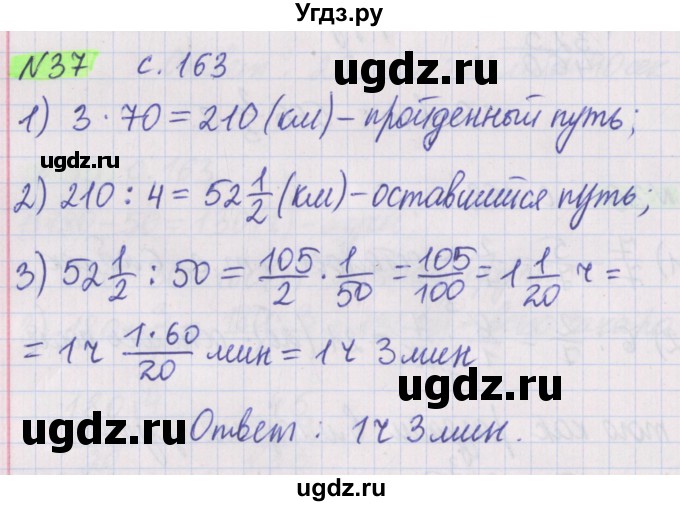 Угдз.ру
№37 с. 163
1) 3 · 70 = 210 (км) – пройденный путь;
ugdz.ru ugdz.ru
2) 210 : 4 = 52 1/2 (км) – оставшийся путь;
ugdz.ru
3) 52 1/2 : 50 = 105/2 · 1/50 = 105/100 = 1 1/20 ч =
= 1ч 1·60/20 мин = 1ч 3 мин
ugdz.ru ugdz.ru
Ответ: 1ч 3 мин.
ugdz.ru